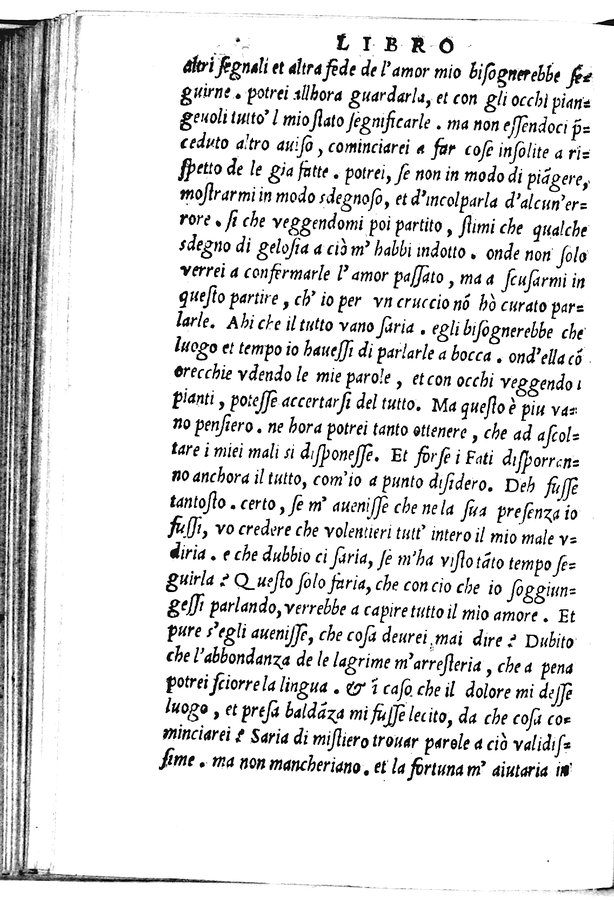 LIBRO
altri ſegnali et altra fede de l'amor mio biſognerebbe ſe=
guirne. potrei allhora guardarla, et con gli occhi pian=
geuoli tutto'l mio ſtato ſegnificarle. ma non eſſendoci p̄=
ceduto altro auiſo, cominciarei a far coſe inſolite a ri=
ſpetto de le gia fatte. potrei, ſe non in modo di piāgere,
moſtrarmi in modo sdegnoſo, et d'incolparla d'alcun'er=
rore. ſi che veggendomi poi partito, ſtimi che qualche
sdegno di geloſia a ciò m'habbi indotto. onde non ſolo
verrei a confermarle l'amor paſſato, ma a ſcuſarmi in
queſto partire, ch'io per vn cruccio nō hò curato par=
larle. Ahi che il tutto vano ſaria. egli biſognerebbe che
luogo et tempo io haueſſi di parlarle a bocca. ond'ella cō
orecchie vdendo le mie parole, et con occhi veggendo i
pianti, poteſſe accertarſi del tutto. Ma queſto è piu va=
no penſiero. ne hora potrei tanto ottenere, che ad aſcol=
tare i miei mali si diſponeſſe. Et forſe i Fati diſporran=
no anchora il tutto, com'io a punto diſidero. Deh fuſſe
tantoſto. certo, ſe m'aueniſſe che ne la ſua preſenza io
fuſſi, vo credere che volentieri tutt'intero il mio male v=
diria. e che dubbio ci ſaria, ſe m'ha viſto tāto tempo ſe=
guirla? Queſto ſolo faria, che con cio che io ſoggiun=
geſſi parlando, verrebbe a capire tutto il mio amore. Et
pure s'egli aueniſſe, che coſa deurei mai dire? Dubito
che l'abbondanza de le lagrime m'arreſteria, che a pena
potrei ſciorre la lingua. & ī caſo che il dolore mi deſſe
luogo, et preſa baldāza mi fuſſe lecito, da che coſa co=
minciarei? Saria di miſtiero trouar parole a ciò validiſ=
ſime. ma non mancheriano. et la fortuna m'aiutaria in